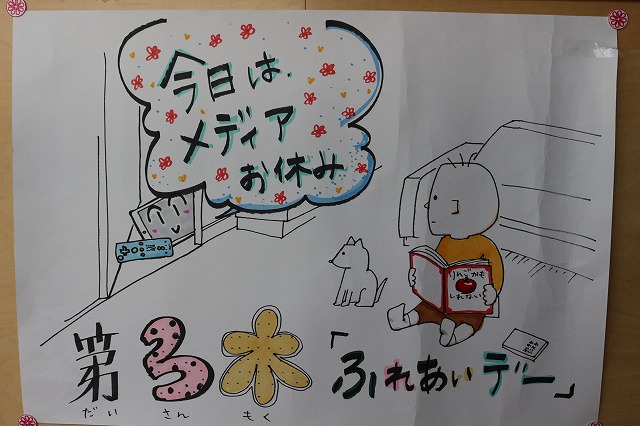 今日は
メディア
お休み
りんごかも
しれない
第3木
だい さん もく
「ふれあいデー」